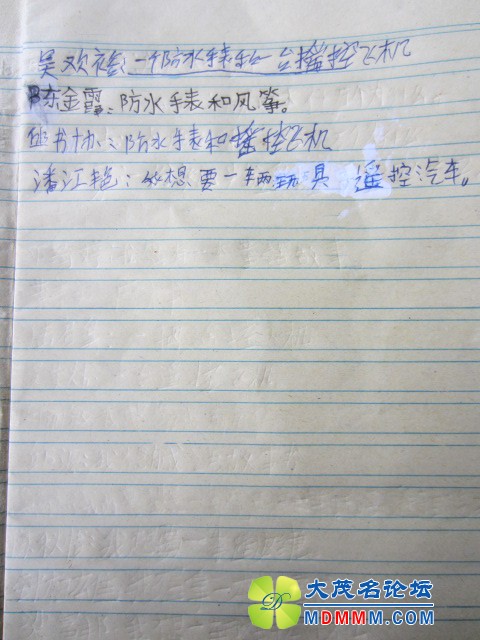 吴欢 一个防水手表和一台摇控飞机
陈金霞:防水手表和风筝。
书协:防水手表和摇控飞机
潘江艳:我想要一辆玩具 遥控汽车。
大茂名论坛
MDMMM.COM